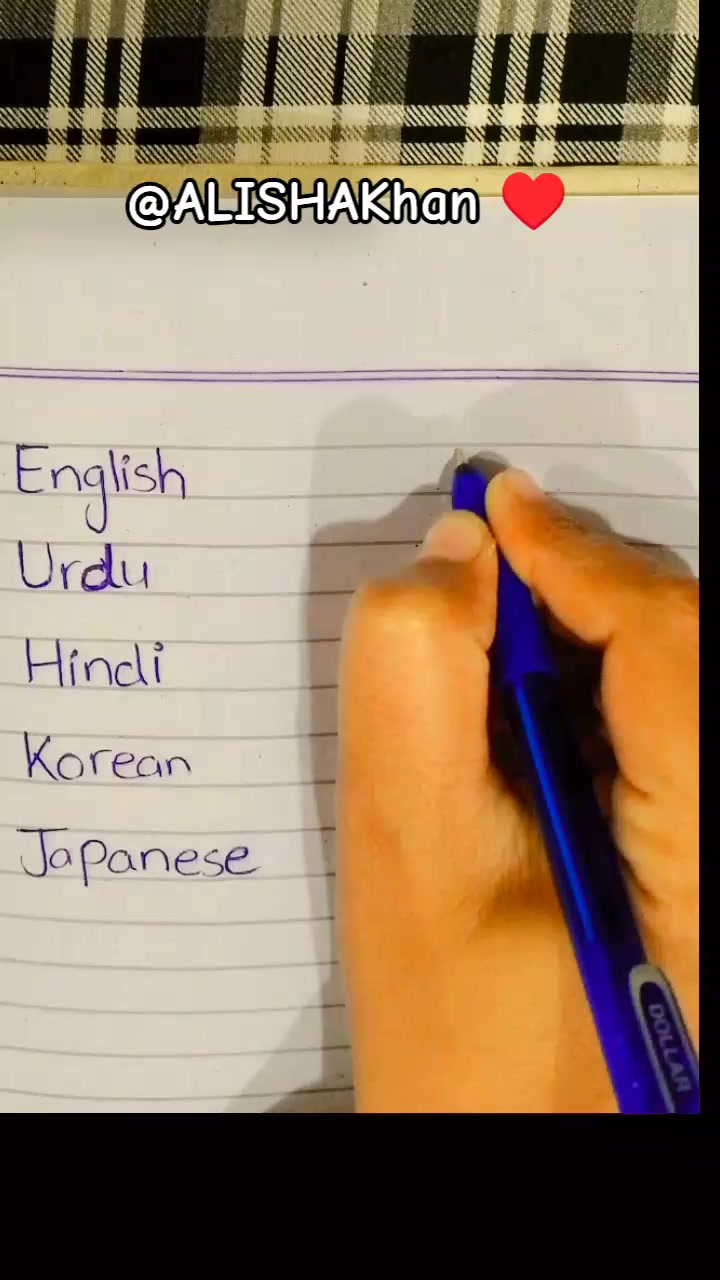 @ALISHAKhan ❤️
English
Urdu
Hindi
Korean
Japanese
DOLLAR